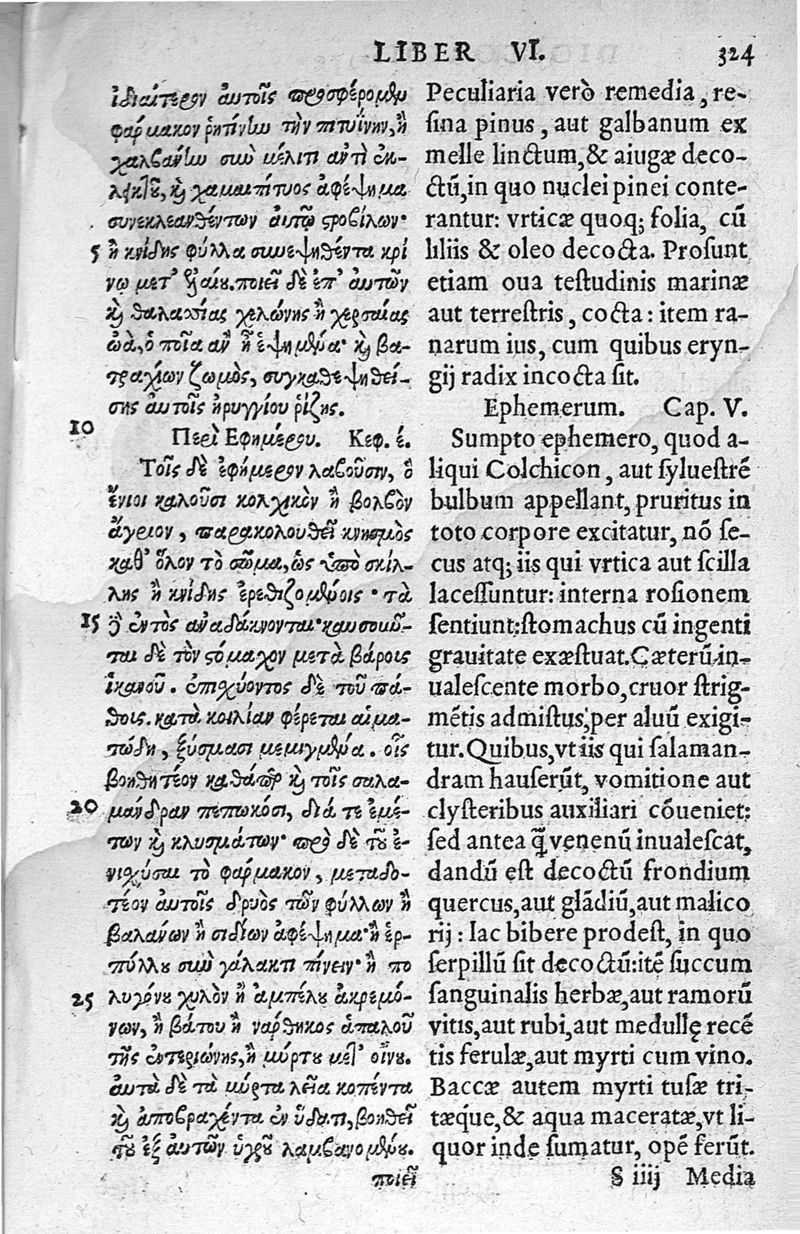 LIBER VI. 324
ἰδιαίτερον αὐτοῖς προσφέρομεν
φάρμακον ῥητίνην τὴν πιτυΐνην, ἢ
χαλβάνην σὺν μέλιτι ἀντὶ ἐκ-
λεικτοῦ, καὶ χαμαιπίτυος ἀφέψημα
συνεκλεανθέντων αὐτῷ στροβίλων·
5 ἢ κνίδης φύλλα συνεψηθέντα κρί
νῳ μετ' ἐλαίου. ποιεῖ δὲ ἐπ' αὐτῶν
καὶ θαλασσίας χελώνης ἢ χερσαίας
ὠὰ, ὁποῖα ἂν ᾖ ἑψημένα· καὶ βα-
τραχίων ζωμὸς, συγκαθεψηθεί-
σης αὐτοῖς ἠρυγγίου ῥίζης.
10
Περὶ Ἐφημέρου. Κεφ. έ.
Τοῖς δὲ ἐφήμερον λαβοῦσιν, ὃ
ἔνιοι καλοῦσι κολχικὸν ἢ βολβὸν
ἄγριον, παρακολουθεῖ κνησμὸς
καθ' ὅλον τὸ σῶμα, ὡς ὑπὸ σκίλ-
λης ἢ κνίδης ἐρεθιζομένοις· τὰ
15 δὲ ἐντὸς ἀναδάκνονται· καυσοῦν-
ται δὲ τὸν στόμαχον μετὰ βάρους
ἱκανοῦ. ἐπισχύοντος δὲ τοῦ πά-
θους. κατὰ κοιλίαν φέρεται αἱμα-
τώδη, ξύσμασι μεμιγμένα. οἷς
βοηθητέον καθάπερ καὶ τοῖς σαλα-
20 μάνδραν πεπωκόσι, διά τε ἐμέ-
των καὶ κλυσμάτων· πρὸ δὲ τοῦ ἐ-
νισχύσαι τὸ φάρμακον, μεταδο-
τέον αὐτοῖς δρυὸς τῶν φύλλων ἢ
βαλάνων ἢ σιδίων ἀφέψημα· ἢ ἑρ-
πύλλου σὺν γάλακτι πίνειν· ἢ πο
25 λυγόνου χυλὸν ἢ ἀμπέλου ἀκρεμό-
νων, ἢ βάτου ἢ νάρθηκος ἁπαλοῦ
τῆς ἐντεριώνης, ἢ μύρτου μετ' οἴνου.
αὐτὰ δὲ τὰ μύρτα λεῖα κοπέντα
καὶ ἀποβραχέντα ἐν ὕδατι, βοηθεῖ
τοῦ ἐξ αὐτῶν ὑγροῦ λαμβανομένου.
ποιεῖ
Peculiaria verò remedia, re-
sina pinus, aut galbanum ex
melle linctum, & aiugæ deco-
ctũ, in quo nuclei pinei conte-
rantur: vrticæ quoq; folia, cũ
liliis & oleo decocta. Prosunt
etiam oua testudinis marinæ
aut terrestris, cocta: item ra-
narum ius, cum quibus eryn-
gij radix incocta sit.
Ephemerum. Cap. V.
Sumpto ephemero, quod a-
liqui Colchicon, aut syluestrẽ
bulbum appellant, pruritus in
toto corpore excitatur, nõ se-
cus atq; iis qui vrtica aut scilla
lacessuntur: interna rosionem
sentiunt: stomachus cũ ingenti
grauitate exæstuat. Cæterũ in-
ualescente morbo, cruor strig-
mẽtis admistus, per aluũ exigi-
tur. Quibus, vt iis qui salaman-
dram hauserũt, vomitione aut
clysteribus auxiliari cõueniet:
sed antea q̃ venenũ inualescat,
dandũ est decoctũ frondium
quercus, aut glãdiũ, aut malico
rij: lac bibere prodest, in quo
serpillũ sit decoctũ: itẽ succum
sanguinalis herbæ, aut ramorũ
vitis, aut rubi, aut medullę recẽ
tis ferulæ, aut myrti cum vino.
Baccæ autem myrti tusæ tri-
tæque, & aqua maceratæ, vt li-
quor inde sumatur, opẽ ferũt.
S iiij Media